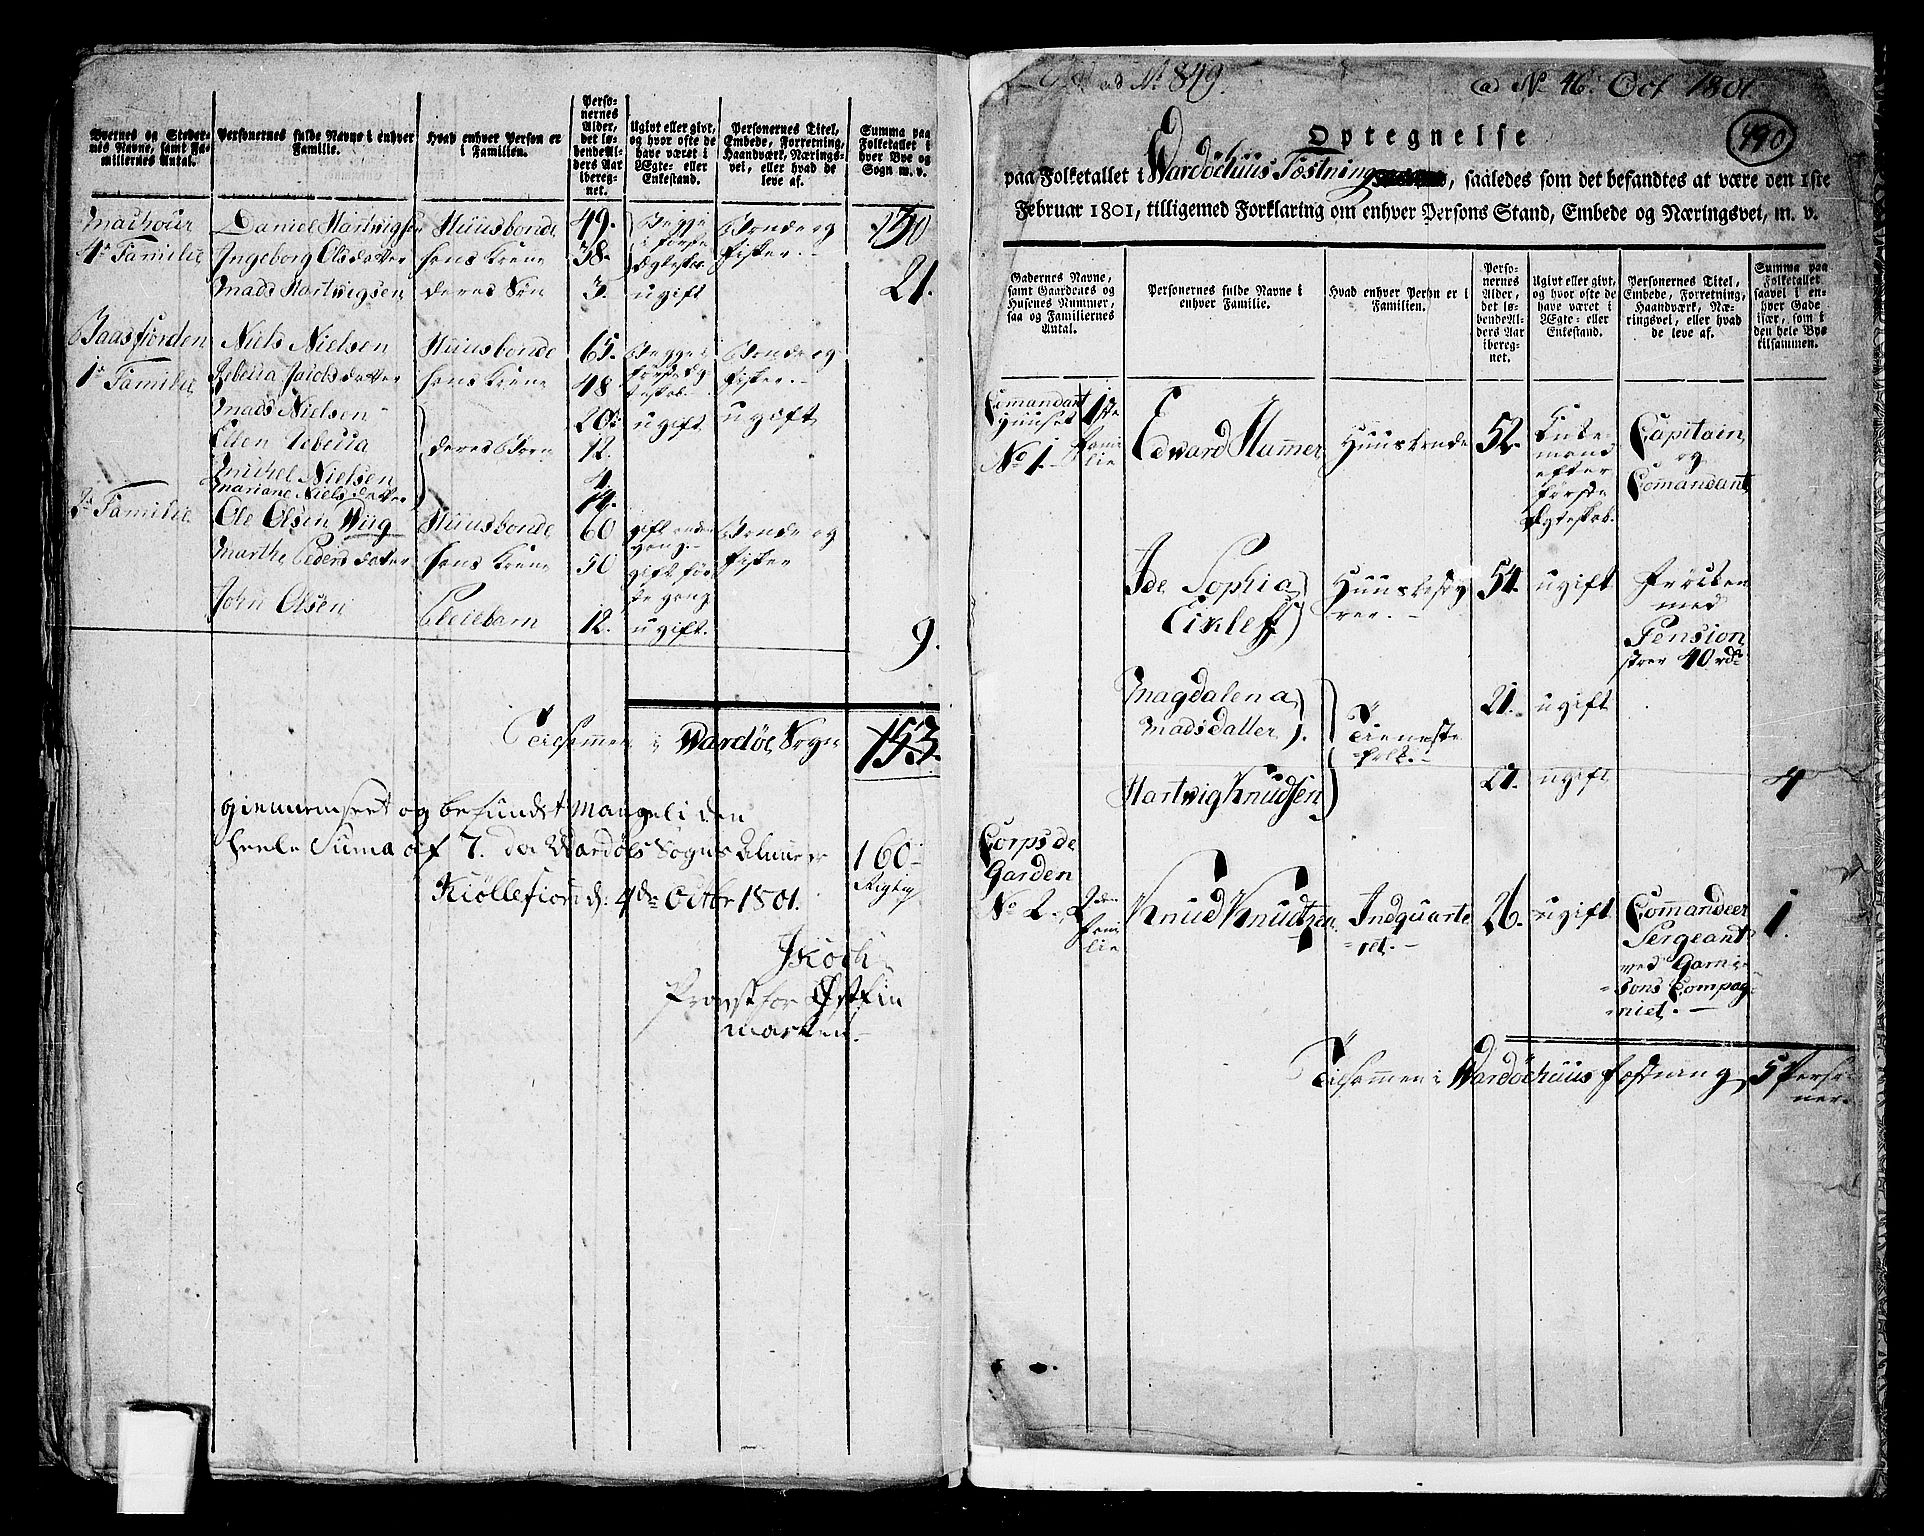 Byernes og Steder-
nes Navne, samt Fa-
miliernes Antal.
Personernes fulde Navne i enhver
Familie.
Hvad enhver Person er
i Familien.
Perso-
nernes
Alder,
det lø-
bende Al-
ders Aar
ibereg-
net.
Ugivt eller givt,
og hvor ofte de
have været i
Ægte- eller
Enkestand.
Personernes Titel,
Embede, Forretning,
Haandværk, Nærings-
vei, eller hvad de
leve af.
Summa paa
Folketallet i
hver Bye og
Sogn m. v.
Madvour Daniel Hartvigsen Huusbonde 49. Begge Bonde og
4de Familie Ingeborg Olsdatter hans Kone 38. i første Fisker.
Ægteskab
Mads Hartvigsen deres Søn 3. ugift 21.
Baasfjorden Niels Nielsen Huusbonde 65. Begge i Bonde og
1te Familie Rebecca Jacobsdatter hans Kone 48 første Æg- Fisker.
teskab.
Mads Nielsen 20. ugift ugift
Ellen Rebecca deres Børn 12.
Michel Nielsen
Mariane Nielsdatter 14.
2de Familie Ole Olsen Wiig Huusbonde 60 gift anden Bonde og
Marthe Pedersdatter hans Kone 50 gang. Fisker
gift før-
ste gang
John Olsen Pleiebarn 12. ugift.
9.
Tilsammen i Wardöe Sogn 153.
giennemseet og befundet Mangel i den
heele Suma af 7. da Wardöes Sogns Almue er 160
Rigtig
Kiöllefiord d: 4de Octbr 1801.
Koch
Provst for Østfin
marken.
ad No 849.
ad No 46. Oct 1801
490
Optegnelse
paa Folketallet i Wardöehuus Fæstning, saaledes som det befandtes at være den 1ste
Februar 1801, tilligemed Forklaring om enhver Persons Stand, Embede og Næringsvei, m. v.
Gadernes Navne,
samt Gaardenes og
Husenes Nummer,
saa og Familiernes
Antal.
Personernes fulde Navne i
enhver Familie.
Hvad enhver Person er i
Familien.
Perso-
nernes
Alder,
det lø-
bende Al-
ders Aar
ibereg-
net.
Ugivt eller givt,
og hvor ofte de
have været i
Ægte- eller
Enkestand.
Personernes Titel,
Embede, Forretning,
Haandværk, Næ-
ringsvei, eller hvad
de leve af.
Summa paa
Folketallet
saavel i en-
hver Gade
især, som i
den hele Bye
tilsammen.
Commandant 1ste
Huuset
No 1. Fami-
lie
Edward Hamer Huusbonde 52. Enke-
mand
efter
første
Ægteskab.
Capitain
og
Commandant
Ide Sophia
Eixleff
Huusbesty
rer.
54. ugift
med
Pension
stor 40 rd
Magdalena
Madsdatter
Tieneste
folk.
21. ugift
Hartwig Knudsen 21. ugift 4
Corps de
Garden
No 2. 2den
Fami
lie
Knud Knudtzen Indquarte
ret.
26. ugift Commandeer 1.
Sergeant
med Garni-
sons Compag-
niet.
Tilsammen i Wardöehuus Fæstning 5 Perso-
ner